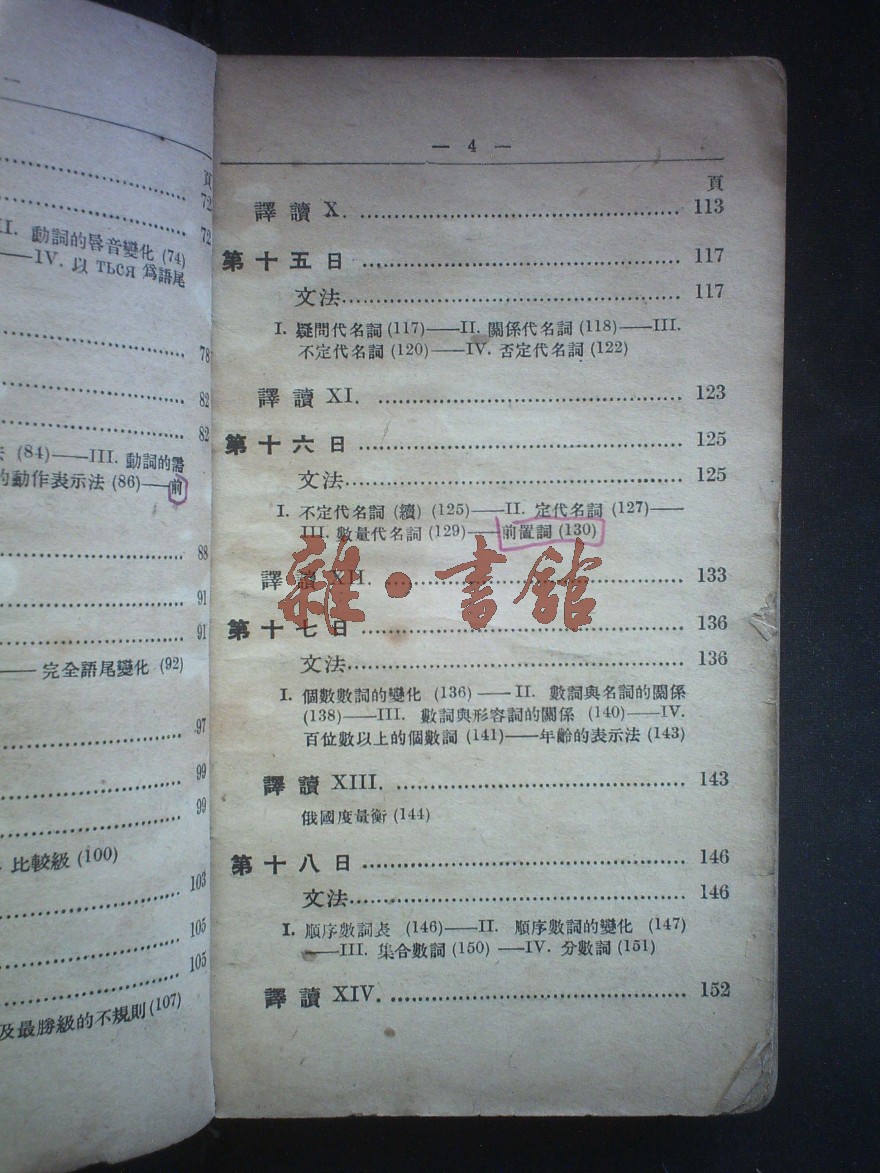 一
頁
72
72
II. 動詞的唇音變化 (74)
——IV. 以 ться 爲語尾
78
82
82
法 (84)——III. 動詞的需
的動作表示法 (86)——前
88
91
91
—— 完全語尾變化 (92)
97
99
99
比較級 (100)
103
105
105
及最勝級的不規則 (107)
— 4 —
頁
譯讀 X. 113
第十五日 117
文法 117
I. 疑問代名詞 (117)——II. 關係代名詞 (118)——III.
不定代名詞 (120)——IV. 否定代名詞 (122)
譯讀 XI. 123
第十六日 125
文法 125
I. 不定代名詞 (續) (125)——II. 定代名詞 (127)——
III. 數量代名詞 (129)——前置詞 (130)
譯讀 XII. 133
雜·書館
第十七日 136
文法 136
I. 個數數詞的變化 (136)——II. 數詞與名詞的關係
(138)——III. 數詞與形容詞的關係 (140)——IV.
百位數以上的個數詞 (141)——年齡的表示法 (143)
譯讀 XIII. 143
俄國度量衡 (144)
第十八日 146
文法 146
I. 順序數詞表 (146)——II. 順序數詞的變化 (147)
——III. 集合數詞 (150)——IV. 分數詞 (151)
譯讀 XIV. 152